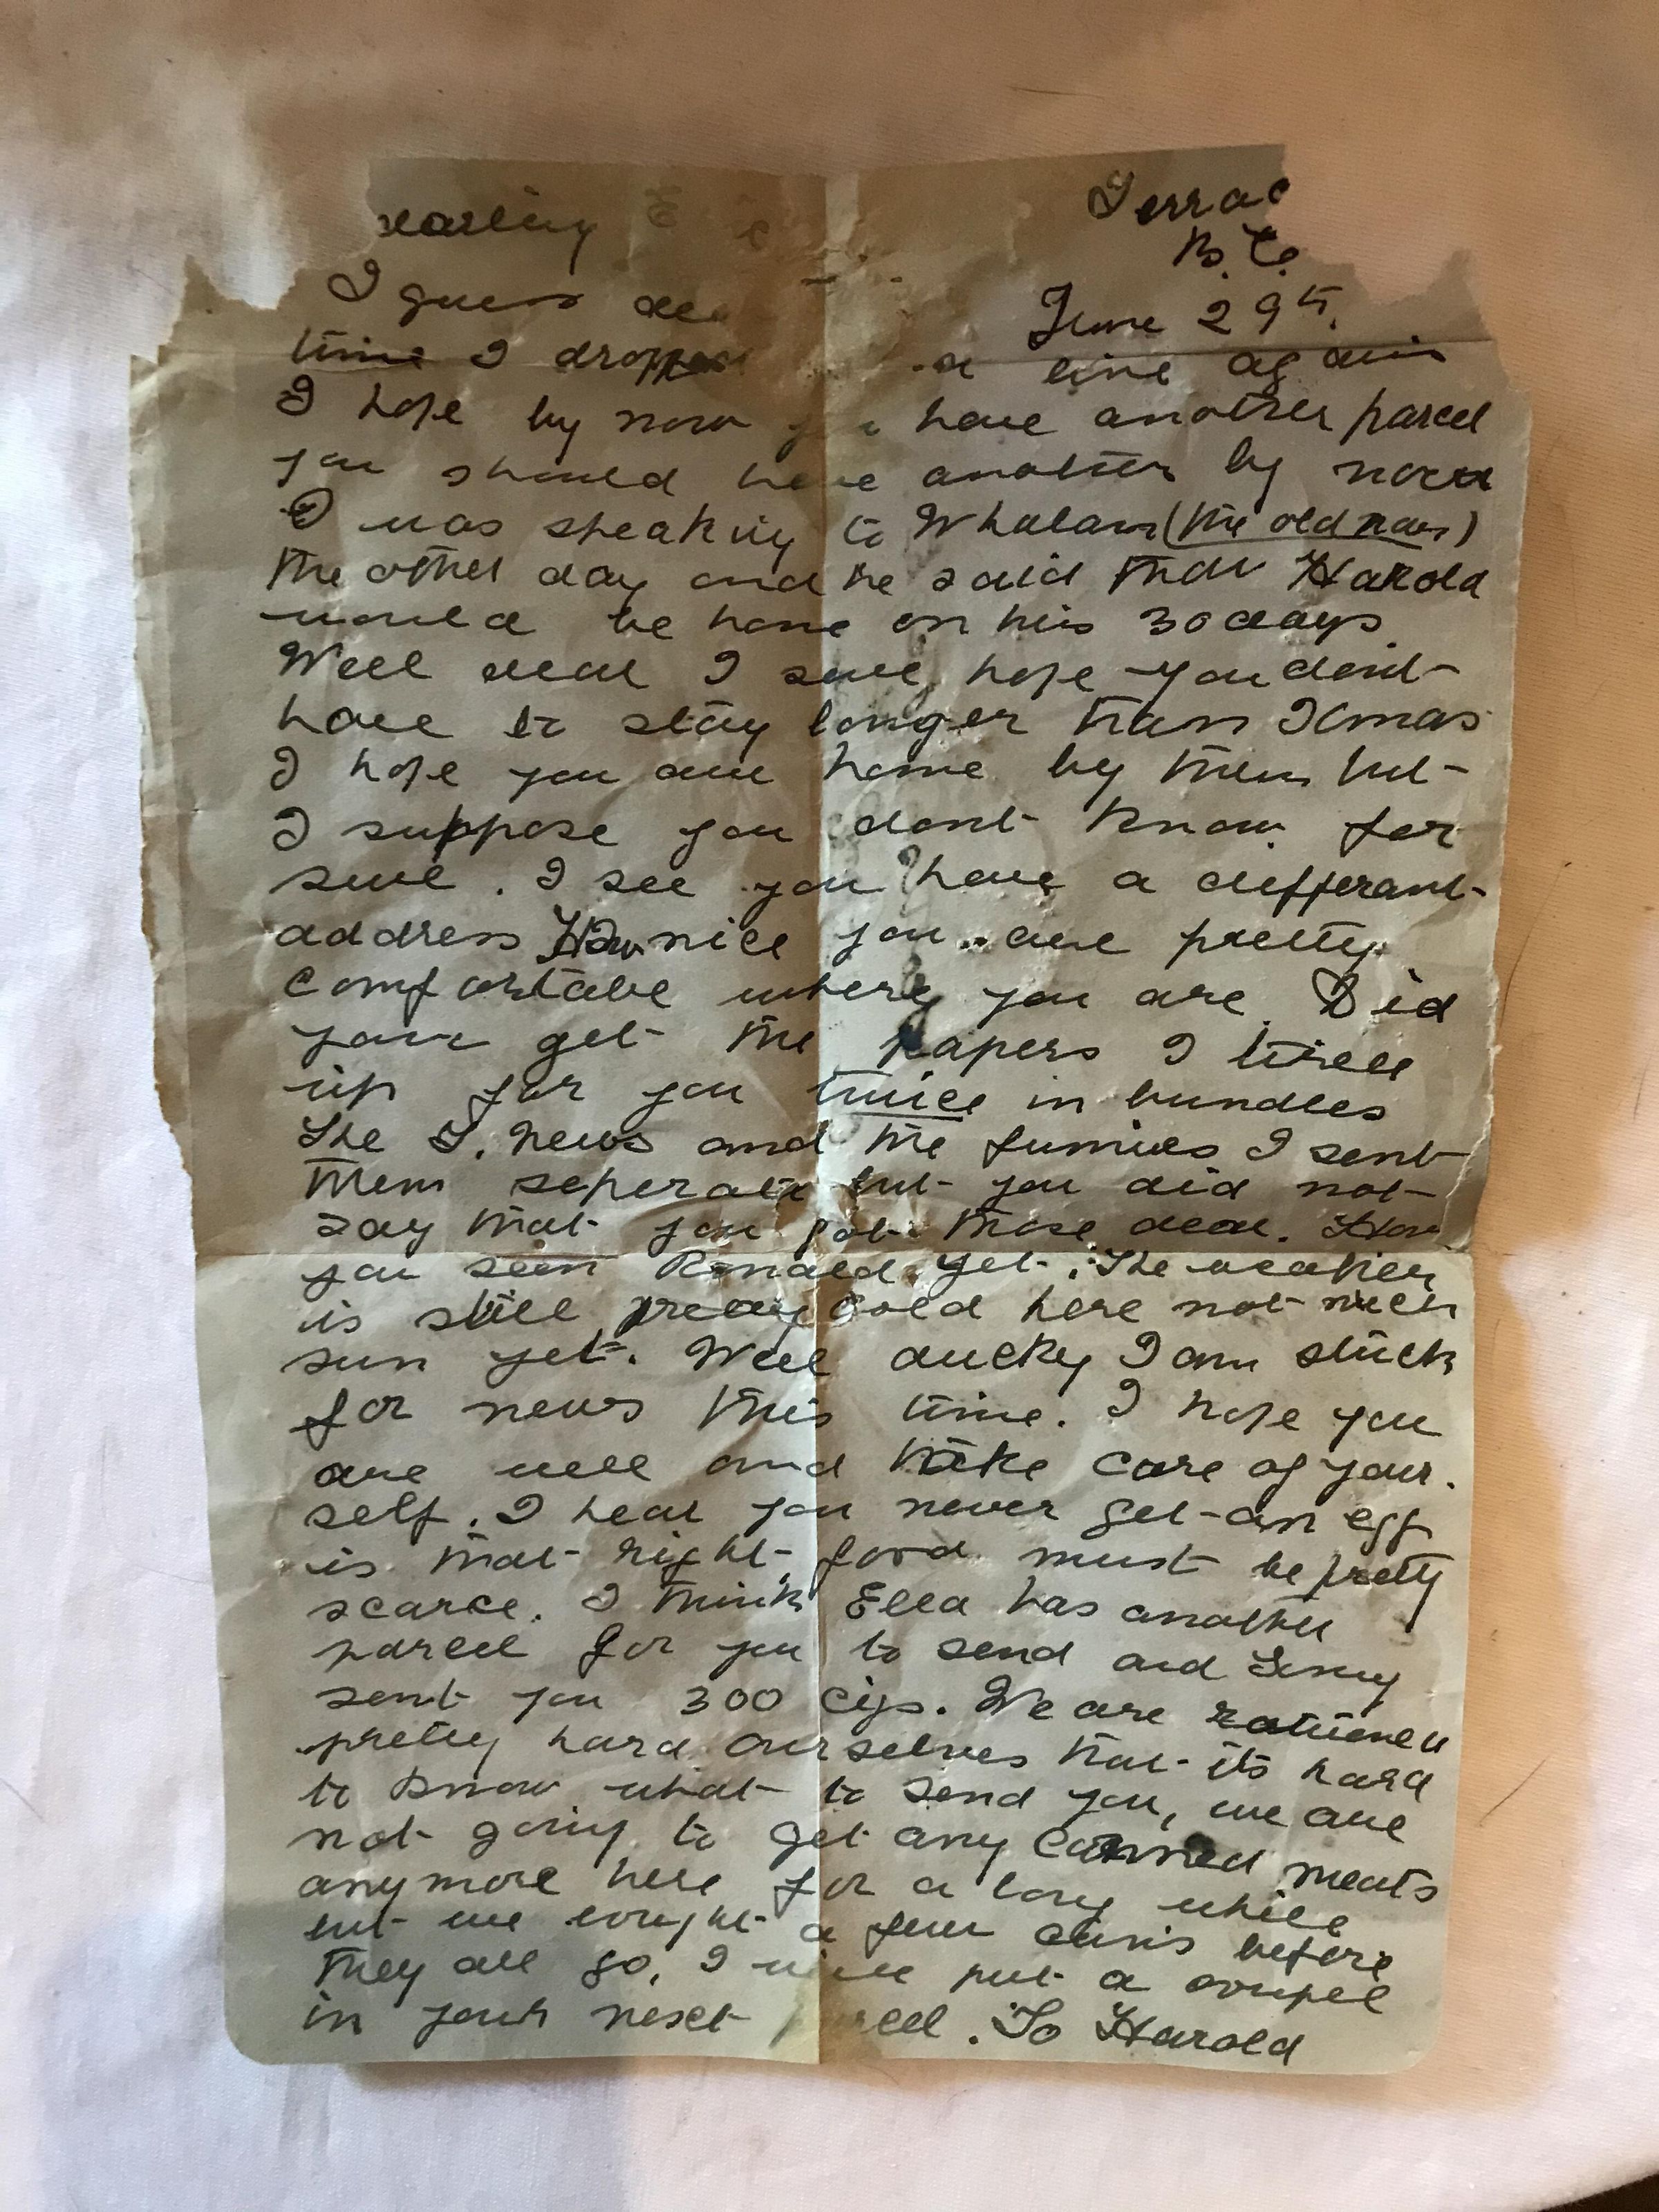 Terrac
B.C.
June 29th.
earling
I guess dea
time I dropped a line again
I hope by now you have another parcel
you should have another by now
I was speaking to Whalam (the old man)
the other day and he said that Harold
would be home on his 30 days
Well dear I sure hope you dont
have to stay longer than Xmas
I hope you are home by then but
I suppose you dont know for
sure. I see you have a differant
address How nice you are pretty
comfortable where you are. Did
your get the papers I
up for you twice in bundles
The T. News and the funnies I sent
them seperate but you did not
say that you got those dear. Hav
you seen Ronald yet. The weather
is still pretty cold here not much
sun yet. Well ducky I am stuck
for news this time. I hope you
are well and take care of your.
self. I hear you never get an egg
is that right, food must be pretty
scarce. I think Ella has another
parcel for you to send and
sent you 300 cigs. We are rationed
pretty hard ourselves that its hard
to know what to send you, we are
not going to get any canned meats
anymore here for a long while
but we bought a few cans before
they all go, I will put a coupel
in your next rcel. So Harold